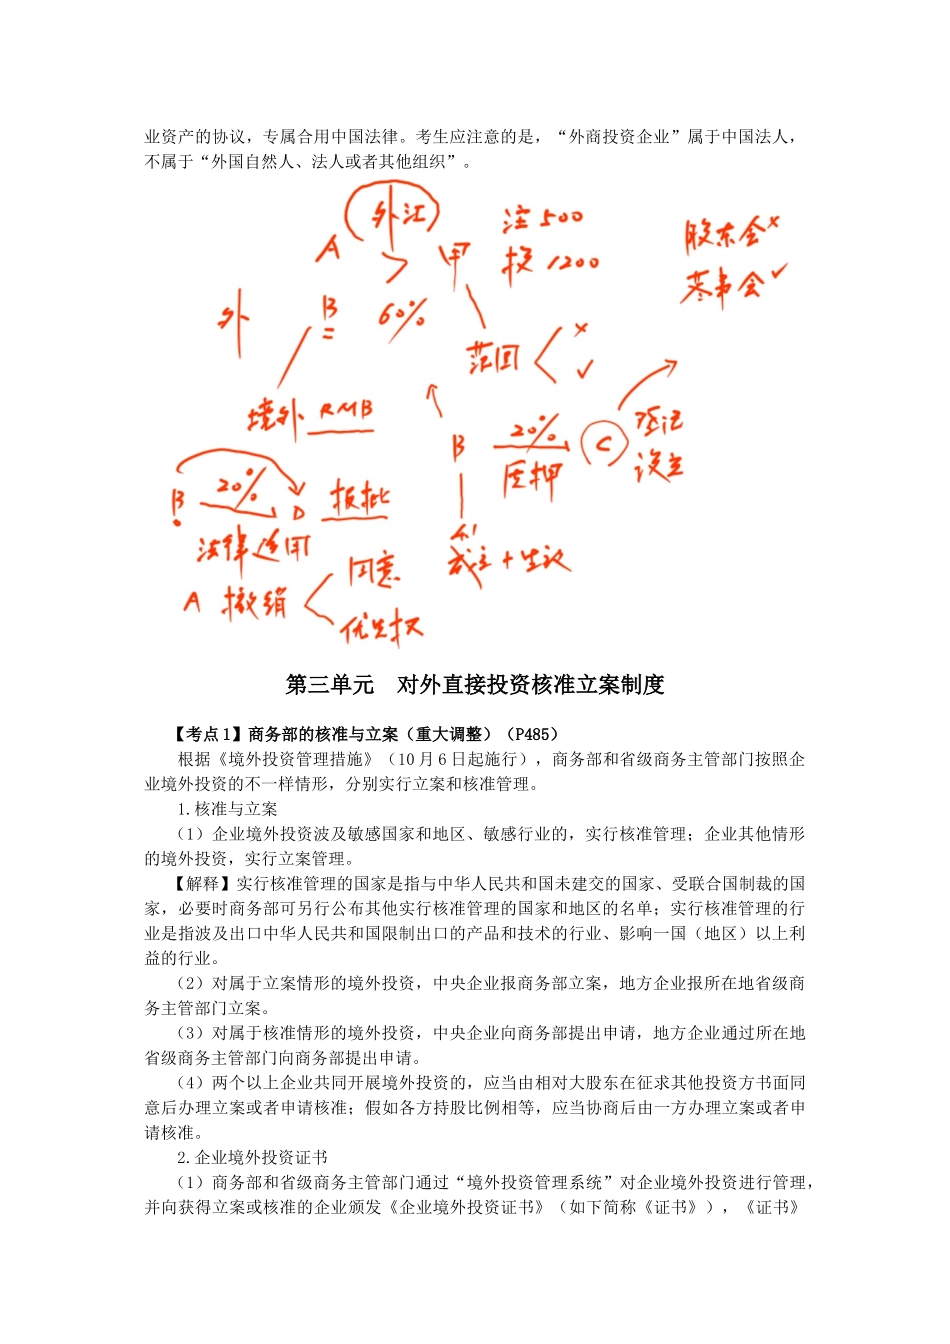 业资产的协议，专属合用中国法律。考生应注意的是，“外商投资企业”属于中国法人，
不属于“外国自然人、法人或者其他组织”。
外汇 注500 股东会×
A 甲 投1200 董事会✓
外 B 60%
范围 × ✓
境外 RMB
B 20% C 登记
质押 设立
B 20% D 报批
法律适用
成立+生效
A 撤销 同意
优先权
第三单元　对外直接投资核准立案制度
【考点1】商务部的核准与立案（重大调整）（P485）
根据《境外投资管理措施》（10月6日起施行），商务部和省级商务主管部门按照企
业境外投资的不一样情形，分别实行立案和核准管理。
1.核准与立案
（1）企业境外投资波及敏感国家和地区、敏感行业的，实行核准管理；企业其他情形
的境外投资，实行立案管理。
【解释】实行核准管理的国家是指与中华人民共和国未建交的国家、受联合国制裁的国
家，必要时商务部可另行公布其他实行核准管理的国家和地区的名单；实行核准管理的行
业是指波及出口中华人民共和国限制出口的产品和技术的行业、影响一国（地区）以上利
益的行业。
（2）对属于立案情形的境外投资，中央企业报商务部立案，地方企业报所在地省级商
务主管部门立案。
（3）对属于核准情形的境外投资，中央企业向商务部提出申请，地方企业通过所在地
省级商务主管部门向商务部提出申请。
（4）两个以上企业共同开展境外投资的，应当由相对大股东在征求其他投资方书面同
意后办理立案或者申请核准；假如各方持股比例相等，应当协商后由一方办理立案或者申
请核准。
2.企业境外投资证书
（1）商务部和省级商务主管部门通过“境外投资管理系统”对企业境外投资进行管理，
并向获得立案或核准的企业颁发《企业境外投资证书》（如下简称《证书》），《证书》